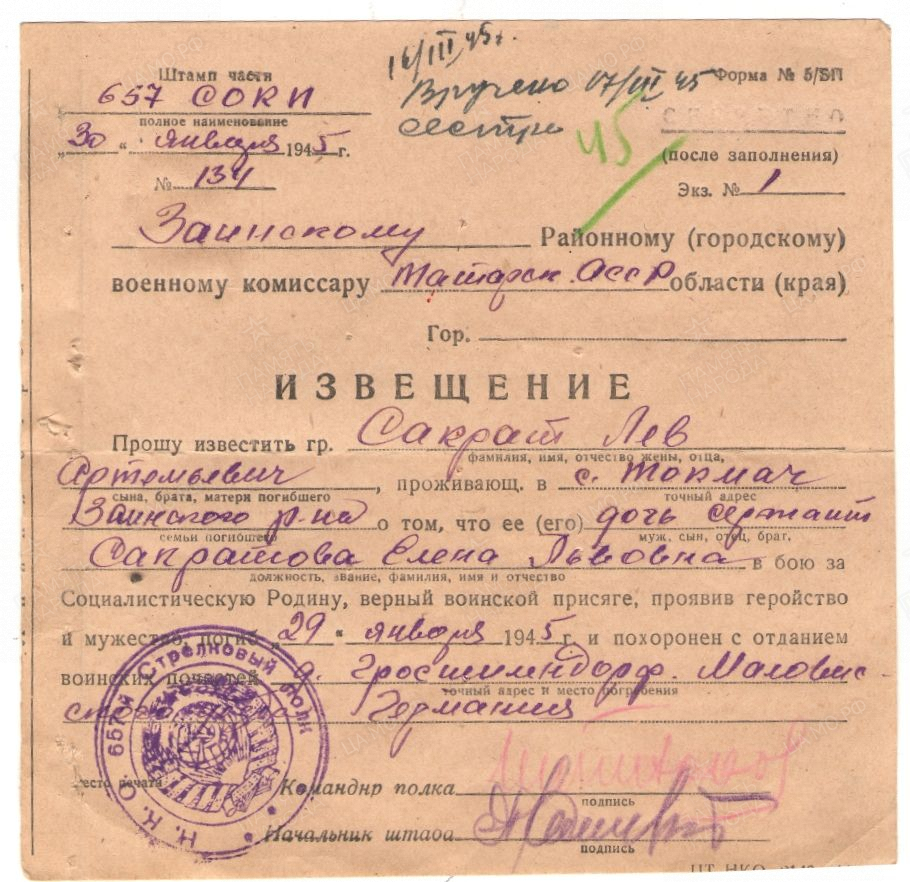 16/III 45г.
Вручено 17/III 45
сестре
45
Штамп части
657 СОКП
полное наименование
„30“ января 1945 г.
№ 134
Форма № 5/БП
СЕКРЕТНО
(после заполнения)
Экз. № 1
Заинскому Районному (городскому)
военному комиссару Татарск. АССР области (края)
Гор.
ИЗВЕЩЕНИЕ
Прошу известить гр. Сакрат Лев
фамилия, имя, отчество жены, отца,
Артемьевич, проживающ. в с. Токмач
сына, брата, матери погибшего точный адрес
Заинского р-на о том, что ее (его) дочь сержант
семьи погибшего муж, сын, отец, брат,
Сакратова Елена Львовна в бою за
должность, звание, фамилия, имя и отчество
Социалистическую Родину, верный воинской присяге, проявив геройство
и мужество, погиб „29“ января 1945 г. и похоронен с отданием
воинских почестей д.
точный адрес и место погребения
Германия
657й Стрелковый полк
Н. К. О.
Место печати
Командир полка
подпись
Начальник штаба
подпись